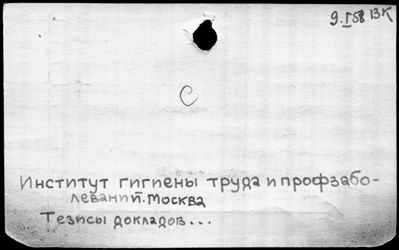 9.I 58 ВК
С
Институт гигиены труда и профзабо-
леваний. Москва
Тезисы докладов...